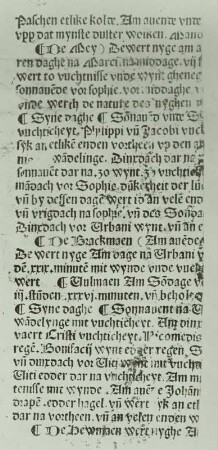 Paschen etlike kolde. Am auende vnde
vpp dat mynste duster wolken. Mano
¶ De Mey) De wert nyge am a
ren daghe na Marci namiddage. vij
wert to vuchtnisse vnde wynt ghene
sonnauēde vor sophie. vor middaghe
vnde werch de nature des nyghen
¶ Syne daghe ¶ Sōnauēd vnde S
vuchticheyt. Philippi vn Jacobi vnde
syk an. etlikē enden vortheen vp den
wādelinge. Dinxdach dar na
sonnauēt dar na .30. wynt. vuchticheyt
mādach vor Sophie. dūkerheit der
vn by dessen dage wert id an velē end
vn vrigdach na sophie. vn des Sonda
Dinxdach vor Vrbani wynt. vn an e
¶ De Brackmaen (Am auēde
De wert nyge Am dage na Vrbani v
vn .xxx. minutē mit wynde vnde vuch
wert ¶ Vulmaen Am Sōdage
iij. stūden .xxxvj. minuten. vn behold
¶ Syne daghe ¶ Sonnauent na V
wandelynge mit vuchticheyt. Am dinx
uaert Cristi vuchticheyt. Nicomedis
regē. Bonifacij wynt edder regen. S
vn dinxdach vor Viti wynt mit vuch
Viti edder dar na vuchticheyt. Am
tenisse mit wynde. Am auēde Johan
drapē. edder hagel. vn wert syk an etl
dar na vortheen. vn an velen enden w
¶ De Hewmaen wert nyghe A